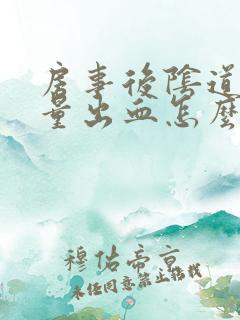 房事後陰道
量出血怎麼
穆佑帝京
未经同意禁止转载